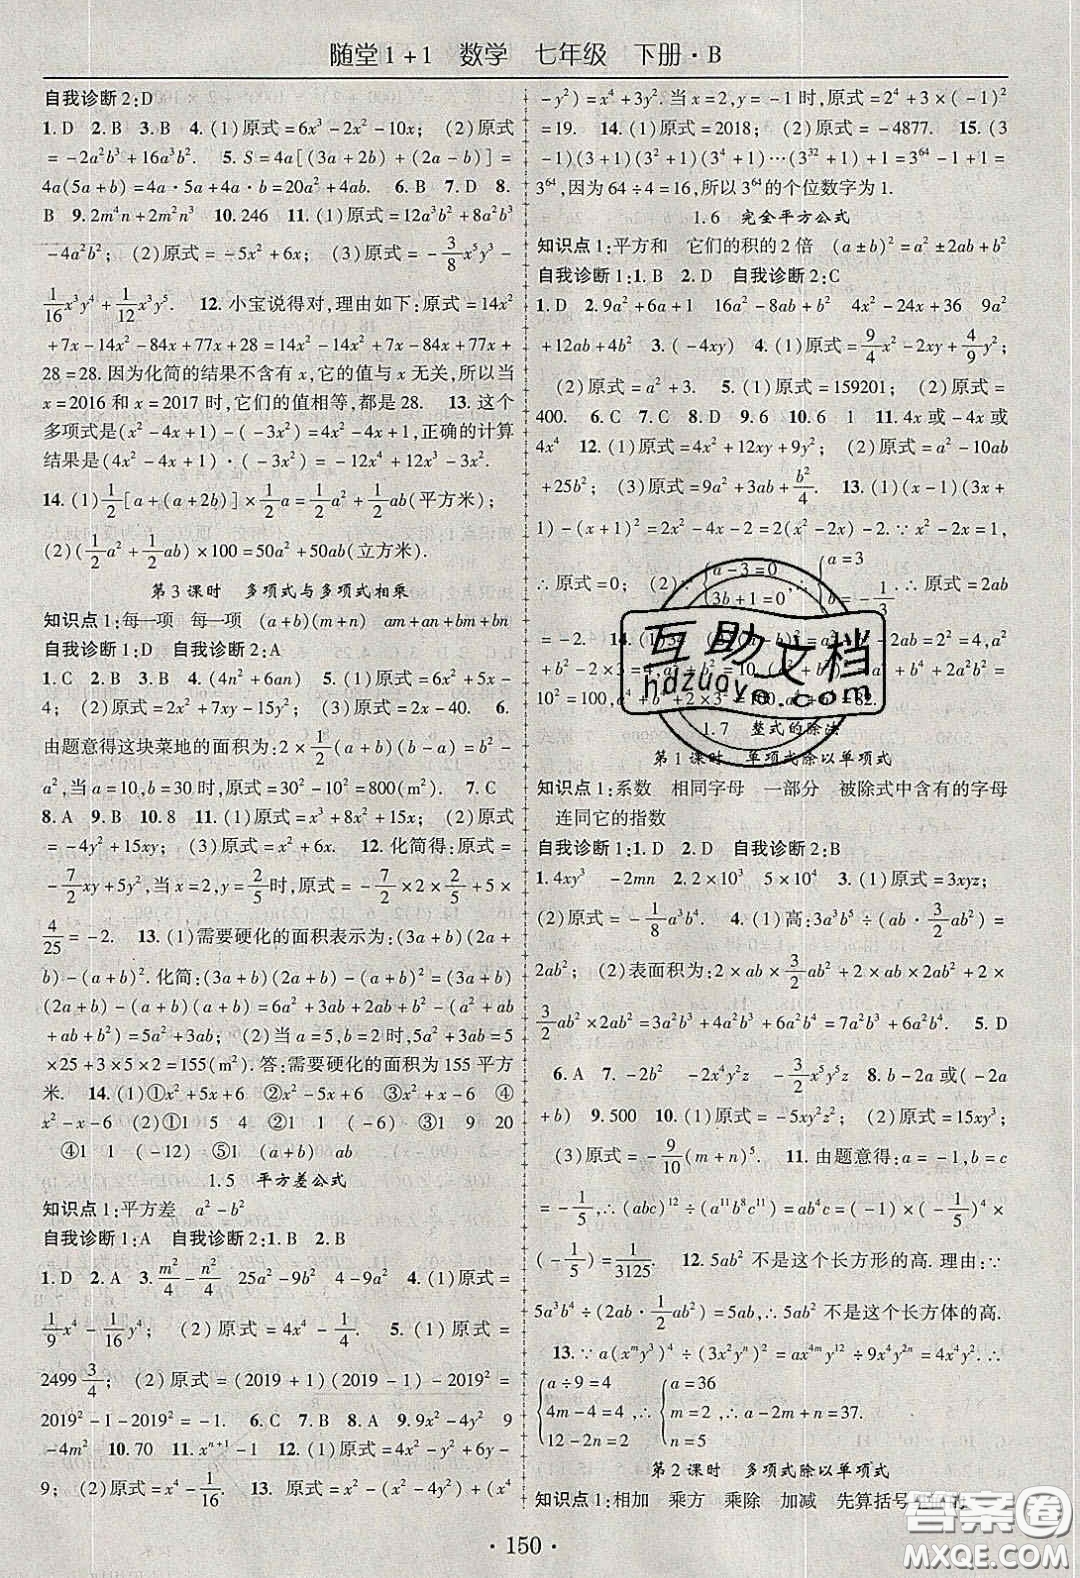 随堂1+1 数学 七年级 下册·B
自我诊断2:D
1. D 2. B 3. B 4. (1)原式=6x³-2x²-10x; (2)原式
=-2a²b³+16a³b². 5. S=4a[(3a+2b)+(2a-b)]=
4a(5a+b)=4a·5a+4a·b=20a²+4ab. 6. B 7. D 8.
B 9. 2m⁴n+2m²n³ 10. 246 11. (1)原式=12a³b²+8a²b³
-4a²b²; (2)原式=-5x²+6x; (3)原式=-3/8x³y³-
1/16x³y⁴+1/12x³y⁵. 12. 小宝说得对,理由如下:原式=14x²
+7x-14x²-84x+77x+28=14x²-14x²-84x+77x+7x+
28=28. 因为化简的结果不含有x,它的值与x无关,所以当
x=2016和x=2017时,它们的值相等,都是28. 13. 这个
多项式是(x²-4x+1)-(-3x²)=4x²-4x+1,正确的计算
结果是(4x²-4x+1)·(-3x²)=-12x⁴+12x³-3x².
14. (1)1/2[a+(a+2b)]×1/2a=1/2a²+1/2ab(平方米);
(2)(1/2a²+1/2ab)×100=50a²+50ab(立方米).
第3课时 多项式与多项式相乘
知识点1:每一项 每一项 (a+b)(m+n) am+an+bm+bn
自我诊断1:D 自我诊断2:A
1. C 2. B 3. B 4. (4n²+6an) 5. (1)原式=6x²+5x-
4; (2)原式=2x²+7xy-15y²; (3)原式=2x-40. 6.
由题意得这块菜地的面积为:2×1/2(a+b)(b-a)=b²-
a²,当a=10,b=30时,原式=30²-10²=800(m²). 7. C
8. A 9. B 10. 8 11. (1)原式=x³+8x²+15x; (2)原式
=-4y²+15xy; (3)原式=x²+6x. 12. 化简得:原式=
-7/2xy+5y²,当x=2,y=2/5时,原式=-7/2×2×2/5+5×
4/25=-2. 13. (1)需要硬化的面积表示为:(3a+b)(2a+
b)-(a+b)². 化简:(3a+b)(2a+b)-(a+b)²=(3a+b)
(2a+b)-(a+b)(a+b)=6a²+3ab+2ab+b²-(a²+ab
+ab+b²)=5a²+3ab; (2)当a=5,b=2时,5a²+3ab=5
×25+3×5×2=155(m²). 答:需要硬化的面积为155平方
米. 14. (1)①x²+5x+6 ②x²-5x+6 ③x²+x-6 ④
x²-x-6 (2)①1 5 4 ②1 (-6) ③1 9 20
④1 1 (-12) ⑤1 (a+b) ab
1.5 平方差公式
知识点1:平方差 a²-b²
自我诊断1:A 自我诊断2:1. B 2. B
1. D 2. A 3. m²/4-n²/4 25a²-9b² 4-9a² 4. (1)原式=
1/9x⁴-1/16y⁴; (2)原式=4x⁴-1/4. 5. (1)原式=
2499 3/4; (2)原式=(2019+1)(2019-1)-2019²=
2019²-1-2019²=-1. 6. C 7. B 8. A 9. 9x²-4y² 9
-4m² 10. 70 11. xⁿ⁺¹-1 12. (1)原式=4x²-y²+6y-
9; (2)原式=x⁴-1/16. 13. 原式=x⁴-y⁴-(4x²-y²)(-x²
-y²)=x⁴+3y⁴. 当x=2,y=-1时,原式=2⁴+3×(-1)²
=19. 14. (1)原式=2018; (2)原式=-4877. 15. (3
-1)(3+1)(3²+1)(3⁴+1)…(3³²+1)+1=3⁶⁴-1+1=
3⁶⁴,因为64÷4=16,所以3⁶⁴的个位数字为1.
1.6 完全平方公式
知识点1:平方和 它们的积的2倍 (a±b)²=a²±2ab+b²
自我诊断1:1. B 2. D 自我诊断2:C
1. D 2. 9a²+6a+1 16a²-8ab+b² 4x²-24x+36 9a²
+12ab+4b² 3. (-4xy) 4. (1)原式=9/4x²-2xy+4/9y²;
(2)原式=a²+3. 5. (1)原式=159201; (2)原式=
400. 6. C 7. C 8. B 9. 6 10. 6 1 11. 4x或-4x或
4x⁴ 12. (1)原式=4x²+12xy+9y²; (2)原式=a²-10ab
+25b²; (3)原式=9a²+3ab+b²/4. 13. (1)(x-1)(3x+
1)-(x+1)²=2x²-4x-2=2(x²-2x)-2. ∵x²-2x=1,
∴原式=0; (2)∵{a-3=0 3b+1=0 {a=3 ∴原式=2ab
=-2. 14. (1)54 (2)
1.7 整式的除法
第1课时 单项式除以单项式
知识点1:系数 相同字母 一部分 被除式中含有的字母
连同它的指数
自我诊断1:1. D 2. D 自我诊断2:B
1. 4xy³ -2mn 2. 2×10³ 5×10⁴ 3. (1)原式=3xyz;
(2)原式=-1/8a³b⁴. 4. (1)高:3a³b⁵÷(ab·3/2ab²)=
2ab²; (2)表面积为:2×ab×3/2ab²+2×ab×2ab²+2×
3/2ab²×2ab²=3a²b³+4a²b³+6a²b⁴=7a²b³+6a²b⁴. 5. D
6. A 7. -2b² -2x⁴y²z -3/2x⁵y⁵z 8. b-2a或(-2a
+b) 9. 500 10. (1)原式=-5xy²z²; (2)原式=15xy³;
(3)原式=-9/10(m+n)². 11. 由题意得:a=-1,b=c
=-1/5,∴(abc)¹²÷(a¹¹b⁸c¹¹)=ab⁴c=(-1)×(-1/5)⁴×
(-1/5)=1/3125. 12. 5ab²不是这个长方形的高. 理由:∵
5a³b⁴÷(2ab·1/2ab²)=5ab,∴5ab²不是这个长方体的高.
13. ∵a(xᵐy³)⁴÷(3x²yⁿ)²=ax⁴ᵐy¹²÷9x⁴y²ⁿ=4x⁴y². ∴
{a÷9=4 4m-4=4 12-2n=2 ,∴{a=36 m=2 n=5 ,∴a-2m+n=37.
第2课时 多项式除以单项式
知识点1:相加 乘方 乘除 加减 先算括号
·150·
互助文档
hdzuoye.com
答案圈
MXQE.COM